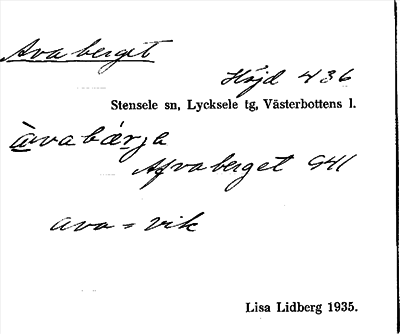 Avaberget
Höjd 436
Stensele sn, Lycksele tg, Västerbottens l.
àvabárja
Afvaberget G41
ava = vik
Lisa Lidberg 1935.